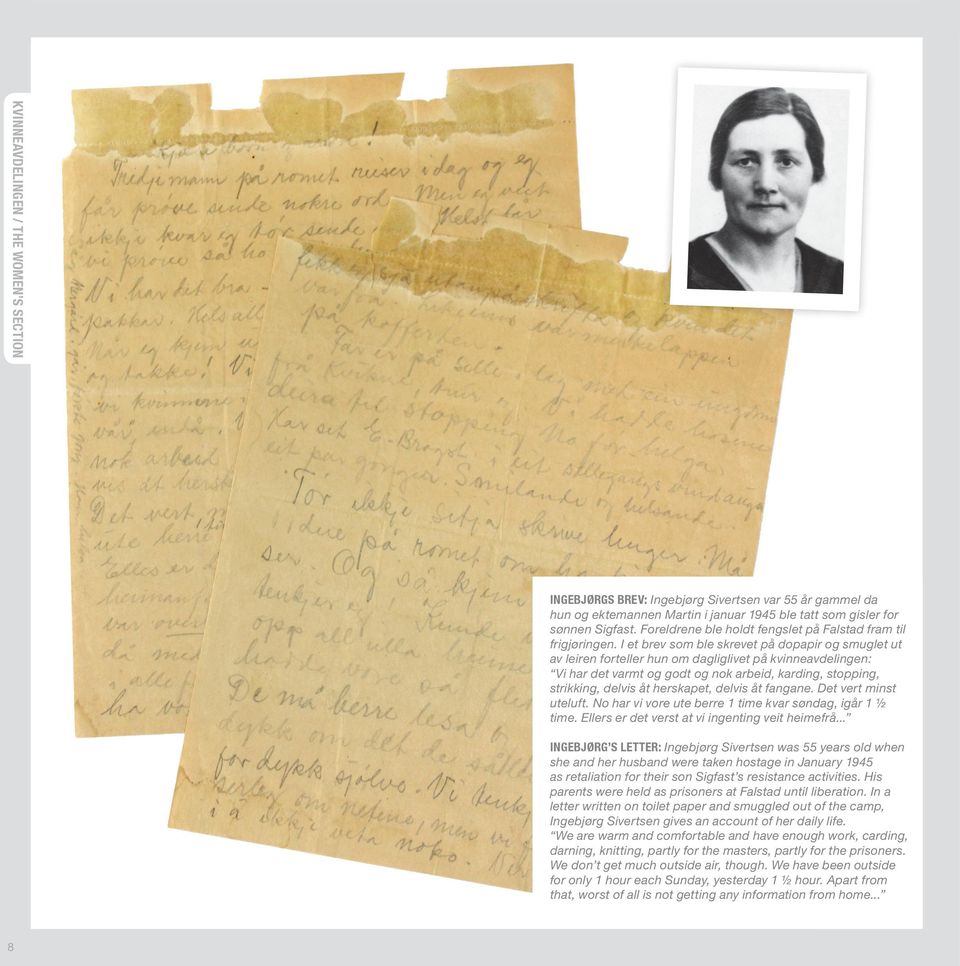 KVINNEAVDELINGEN / THE WOMEN'S SECTION
Tredjemann på romet reiser i dag og eg
får prøve sende nokre ord. Men eg veit
ikkje kvar eg tør sende. Helst får
vi prøve så
Vi har det bra
pakkar. Hels all
Når eg kjem u
og takke! Vi
vi kvinnene
vår endå.
nok arbeid
vis åt hersk
Det vert
ute berre
Elles er d
heimanf
var over
då med
i alle f
ha vo
på kofferten.
Far er på selle i lag med ein ungdom
frå Kvikne, trur eg. Vi hadde hosene
deira til stopping no før helga.
Har set E. Brogst. i eit sellegangs vindauga
eit par gonger. Smilande og helsande.
Tør ikkje sitja skrive lenger. Må
vidne på romet om
ser. Og så kjem
tenkjer eg! Kunde
opp all ulla heime
hadde vore så
De må berre lesa
dykk om det de
for dykk sjølve. Vi tenk
serleg om netene, men vi
i å ikkje veta noko.
INGEBJØRGS BREV: Ingebjørg Sivertsen var 55 år gammel da
hun og ektemannen Martin i januar 1945 ble tatt som gisler for
sønnen Sigfast. Foreldrene ble holdt fengslet på Falstad fram til
frigjøringen. I et brev som ble skrevet på dopapir og smuglet ut
av leiren forteller hun om dagliglivet på kvinneavdelingen:
“Vi har det varmt og godt og nok arbeid, karding, stopping,
strikking, delvis åt herskapet, delvis åt fangane. Det vert minst
uteluft. No har vi vore ute berre 1 time kvar søndag, igår 1 ½
time. Ellers er det verst at vi ingenting veit heimefrå...”
INGEBJØRG'S LETTER: Ingebjørg Sivertsen was 55 years old when
she and her husband were taken hostage in January 1945
as retaliation for their son Sigfast's resistance activities. His
parents were held as prisoners at Falstad until liberation. In a
letter written on toilet paper and smuggled out of the camp,
Ingebjørg Sivertsen gives an account of her daily life.
“We are warm and comfortable and have enough work, carding,
darning, knitting, partly for the masters, partly for the prisoners.
We don't get much outside air, though. We have been outside
for only 1 hour each Sunday, yesterday 1 ½ hour. Apart from
that, worst of all is not getting any information from home...”
8